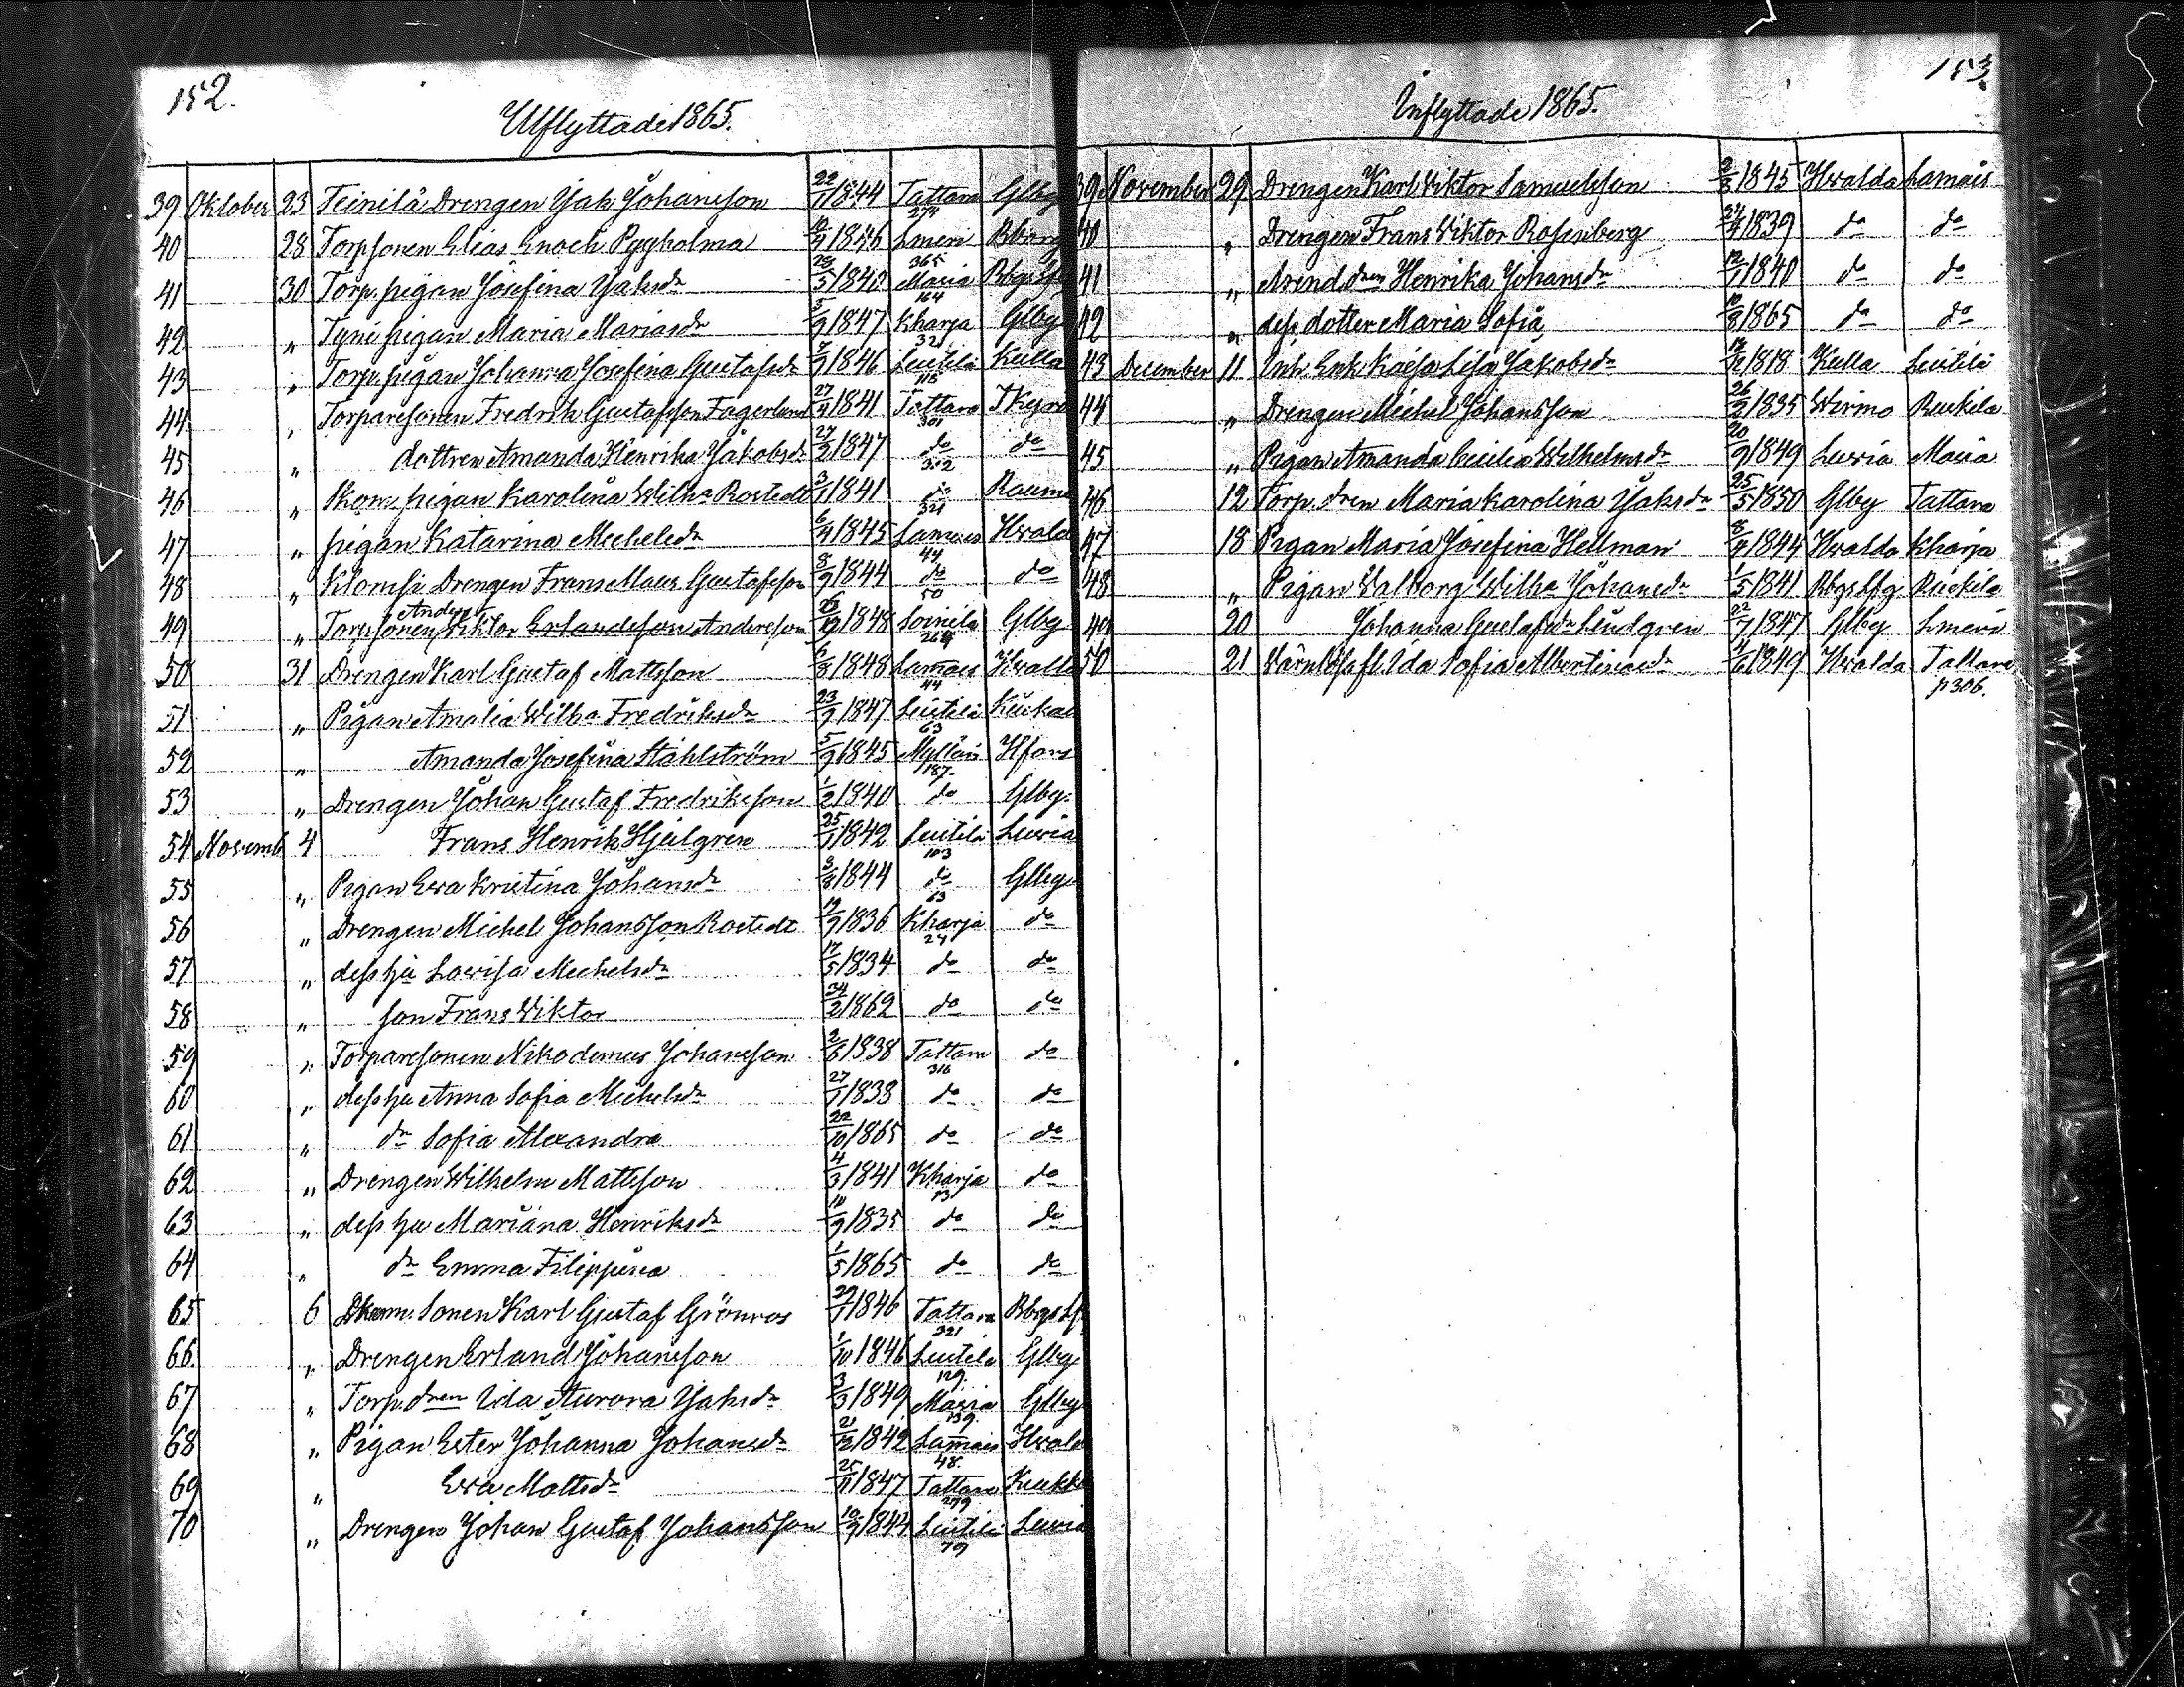 152.
Utflyttade 1865.
39 Oktober 23 Teinilä Drengen Isak Johansson 22/1 1844 Tattara Glby
274
40 28 Torpsonen Elias Enoch Pyyholma 1846 Lmeri Bborg
365
41 30 Torp. pigan Josefina Isaksdr 28/5 1840 Maria
164
42 " pigan Maria Mariasdr 5/9 1847 Kharja Glby
321
43 " Torp. pigan Johanna Josefina Gustafsdr 7/9 1846 Leistilä Kulla
118
44 " Torparesonen Fredrik Gustafsson Fagerlund 27/4 1841 Tattara Tkyro
301
45 " dottren Amanda Henrika Jakobsdr 27/2 1847 do do
302
46 " Skom. pigan Karolina Wilha Rostedt 1841 do Raumo
321
47 " pigan Katarina Michelsdr 6/4 1845 Lamais Hvalda
44
48 " Drengen Frans Maur. Gustafsson 8/9 1844 do do
50
49 " Torpsonen Anders Viktor Erlandsson Andersson 1848 Soinila Glby
264
50 31 Drengen Karl Gustaf Mattsson 1848 Lamais Hvalda
44
51 " Pigan Amalia Wilha Fredriksdr 23/9 1847 Leistilä
63
52 " Amanda Josefina Ståhlström 5/9 1845 Hfors
187.
53 " Drengen Johan Gustaf Fredriksson 1/2 1840 do Glby.
54 Novemb 4 Frans Henrik Hjelgren 25/1 1842 Leistilä Luvia
103
55 " Pigan Eva Kristina Johansdr 1844 do Glby
63
56 " Drengen Michel Johansson Rostedt 19/9 1836 Kharja do
24
57 " dess hu Lovisa Michelsdr 17/5 1834 do do
58 " son Frans Viktor 24/2 1862 do do
59 " Torparesonen Nikodemus Johansson 2/6 1838 Tattara do
316
60 " dess hu Anna Sofia Michelsdr 27/1 1838 do do
61 " dr Sofia Alexandra 22/10 1865 do do
62 " Drengen Wilhelm Mattsson 4/3 1841 Kharja do
13
63 " dess hu Mariana Henriksdr 10/9 1835 do do
64 " dr Emma Filippina 1/5 1865 do do
65 6 Sonen Karl Gustaf Grönroos 29/7 1846 Tattara
321
66. " Drengen Erland Johansson 1/10 1846 Leistilä Glby
129.
67 " Torp.dren Ida Aurora Isaksdr 3/3 1849 Maria Glby
159.
68 " Pigan Ester Johanna Johansdr 21/12 1842 Lamais Hvalda
48.
69 " Eva Mattsdr 25/11 1847 Tattara
279
70 " Drengen Johan Gustaf Johansson 10/9 1844 Leistilä Luvia
79
153.
Inflyttade 1865.
39 November 29 Drengen Karl Viktor Samuelsson 2/3 1845 Hvalda Lamais
40 " Drengen Frans Viktor Rosenberg 24/4 1839 do do
41 " Arend.dren Henrika Johansdr 12/7 1840 do do
42 " dess dotter Maria Sofia 10/3 1865 do do
43 December 11 Inh. Enk. Kaisa Lisa Jakobsdr 1818 Kulla Leistilä
44 " Drengen Michel Johansson 26/2 1835 Wirmo Ruskila
45 " Pigan Amanda Cecilia Wilhelmsdr 20/9 1849 Luvia Maria
46 12 Torp.dren Maria Karolina Isaksdr 25/5 1850 Glby Tattara
47 18 Pigan Maria Josefina Hellman 8/4 1844 Hvalda Kharja
48 " Pigan Valborg Wilha Johansdr 1/5 1841 Ruskila
49 20 Johanna Gustafsdr Lindgren 22/7 1847 Glby Lmeri
50 21 Värnlösa fl. Ida Sofia Albertinasdr 4/6 1849 Hvalda Tattara
p 306.